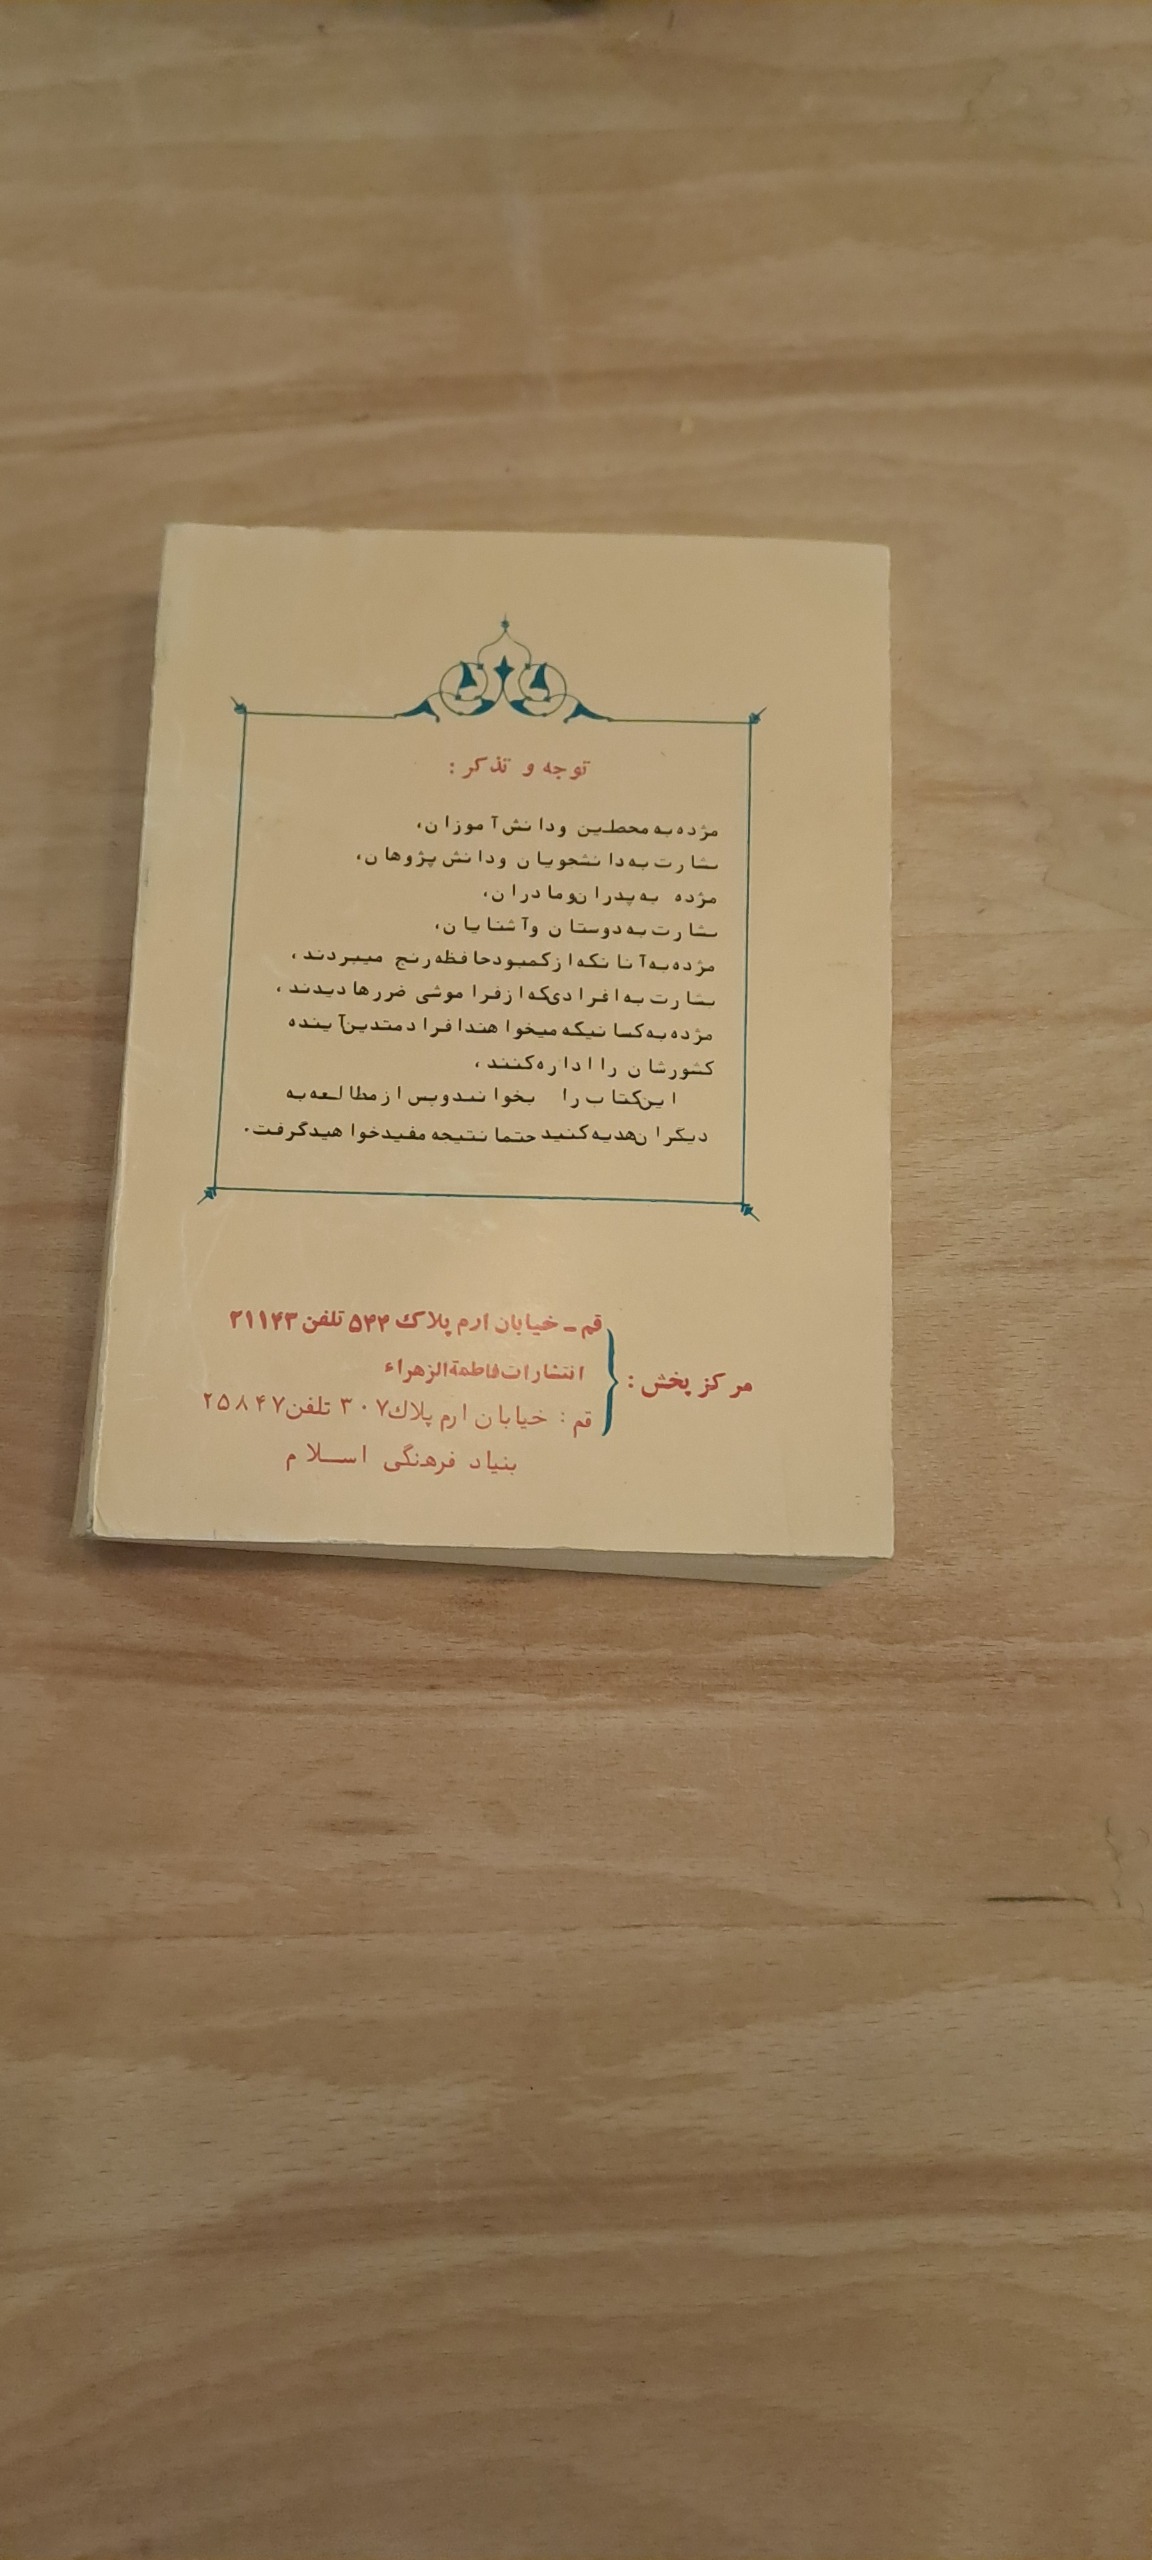 توجه و تذکر :
مژده به محصلین ودانش آموزان،
بشارت به دانشجویان ودانش پژوهان،
مژده به پدران ومادران،
بشارت به دوستان وآشنایان،
مژده به آنانکه از کمبود حافظه رنج میبردند،
بشارت به افرادی که از فراموشی ضررها دیدند،
مژده به کسانیکه میخواهند افراد متدین آینده
کشورشان را اداره کنند،
این کتاب را بخوانید و پس از مطالعه به
دیگران هدیه کنید حتما نتیجه مفید خواهید گرفت.
مرکز پخش :
قم ـ خیابان ارم پلاک ۵۴۴ تلفن ۲۱۱۴۳
انتشارات فاطمةالزهراء
قم : خیابان ارم پلاك ۳۰۷ تلفن ۲۵۸۴۷
بنیاد فرهنگی اسلام